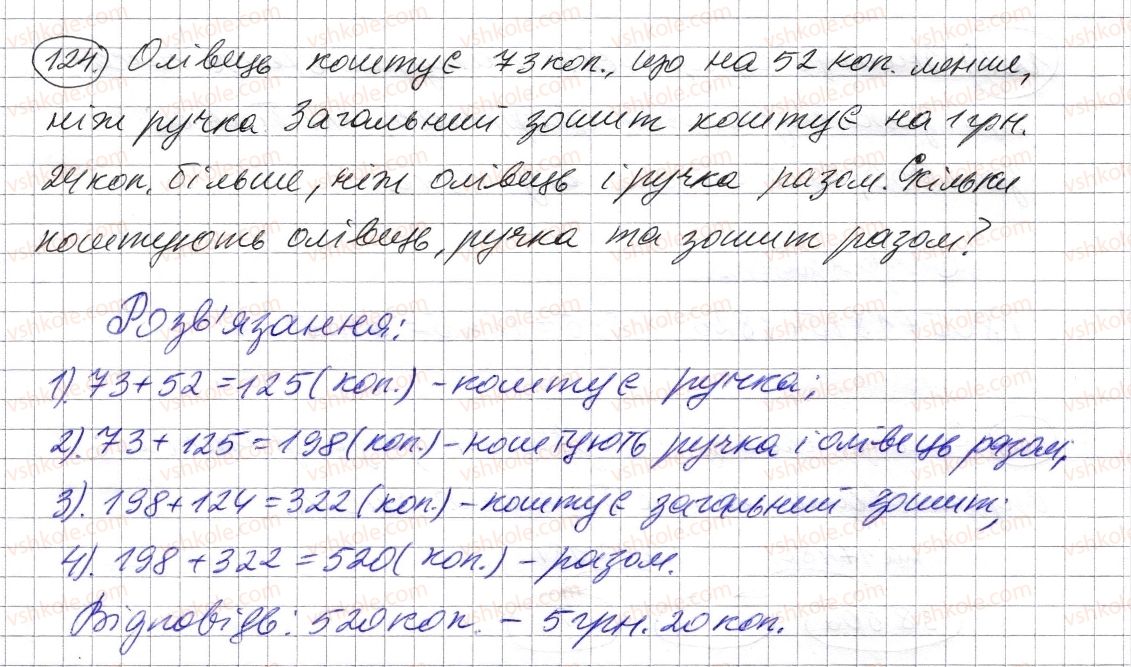 124. Олівець коштує 73 коп., що на 52 коп. менше,
ніж ручка Загальний зошит коштує на 1 грн.
24 коп. більше, ніж олівець і ручка разом. Скільки
коштують олівець, ручка та зошит разом?
Розв'язання:
1). 73 + 52 = 125 (коп.) - коштує ручка;
2). 73 + 125 = 198 (коп.) - коштують ручка і олівець разом;
3). 198 + 124 = 322 (коп.) - коштує загальний зошит;
4). 198 + 322 = 520 (коп.) - разом.
Відповідь: 520 коп. - 5 грн. 20 коп.